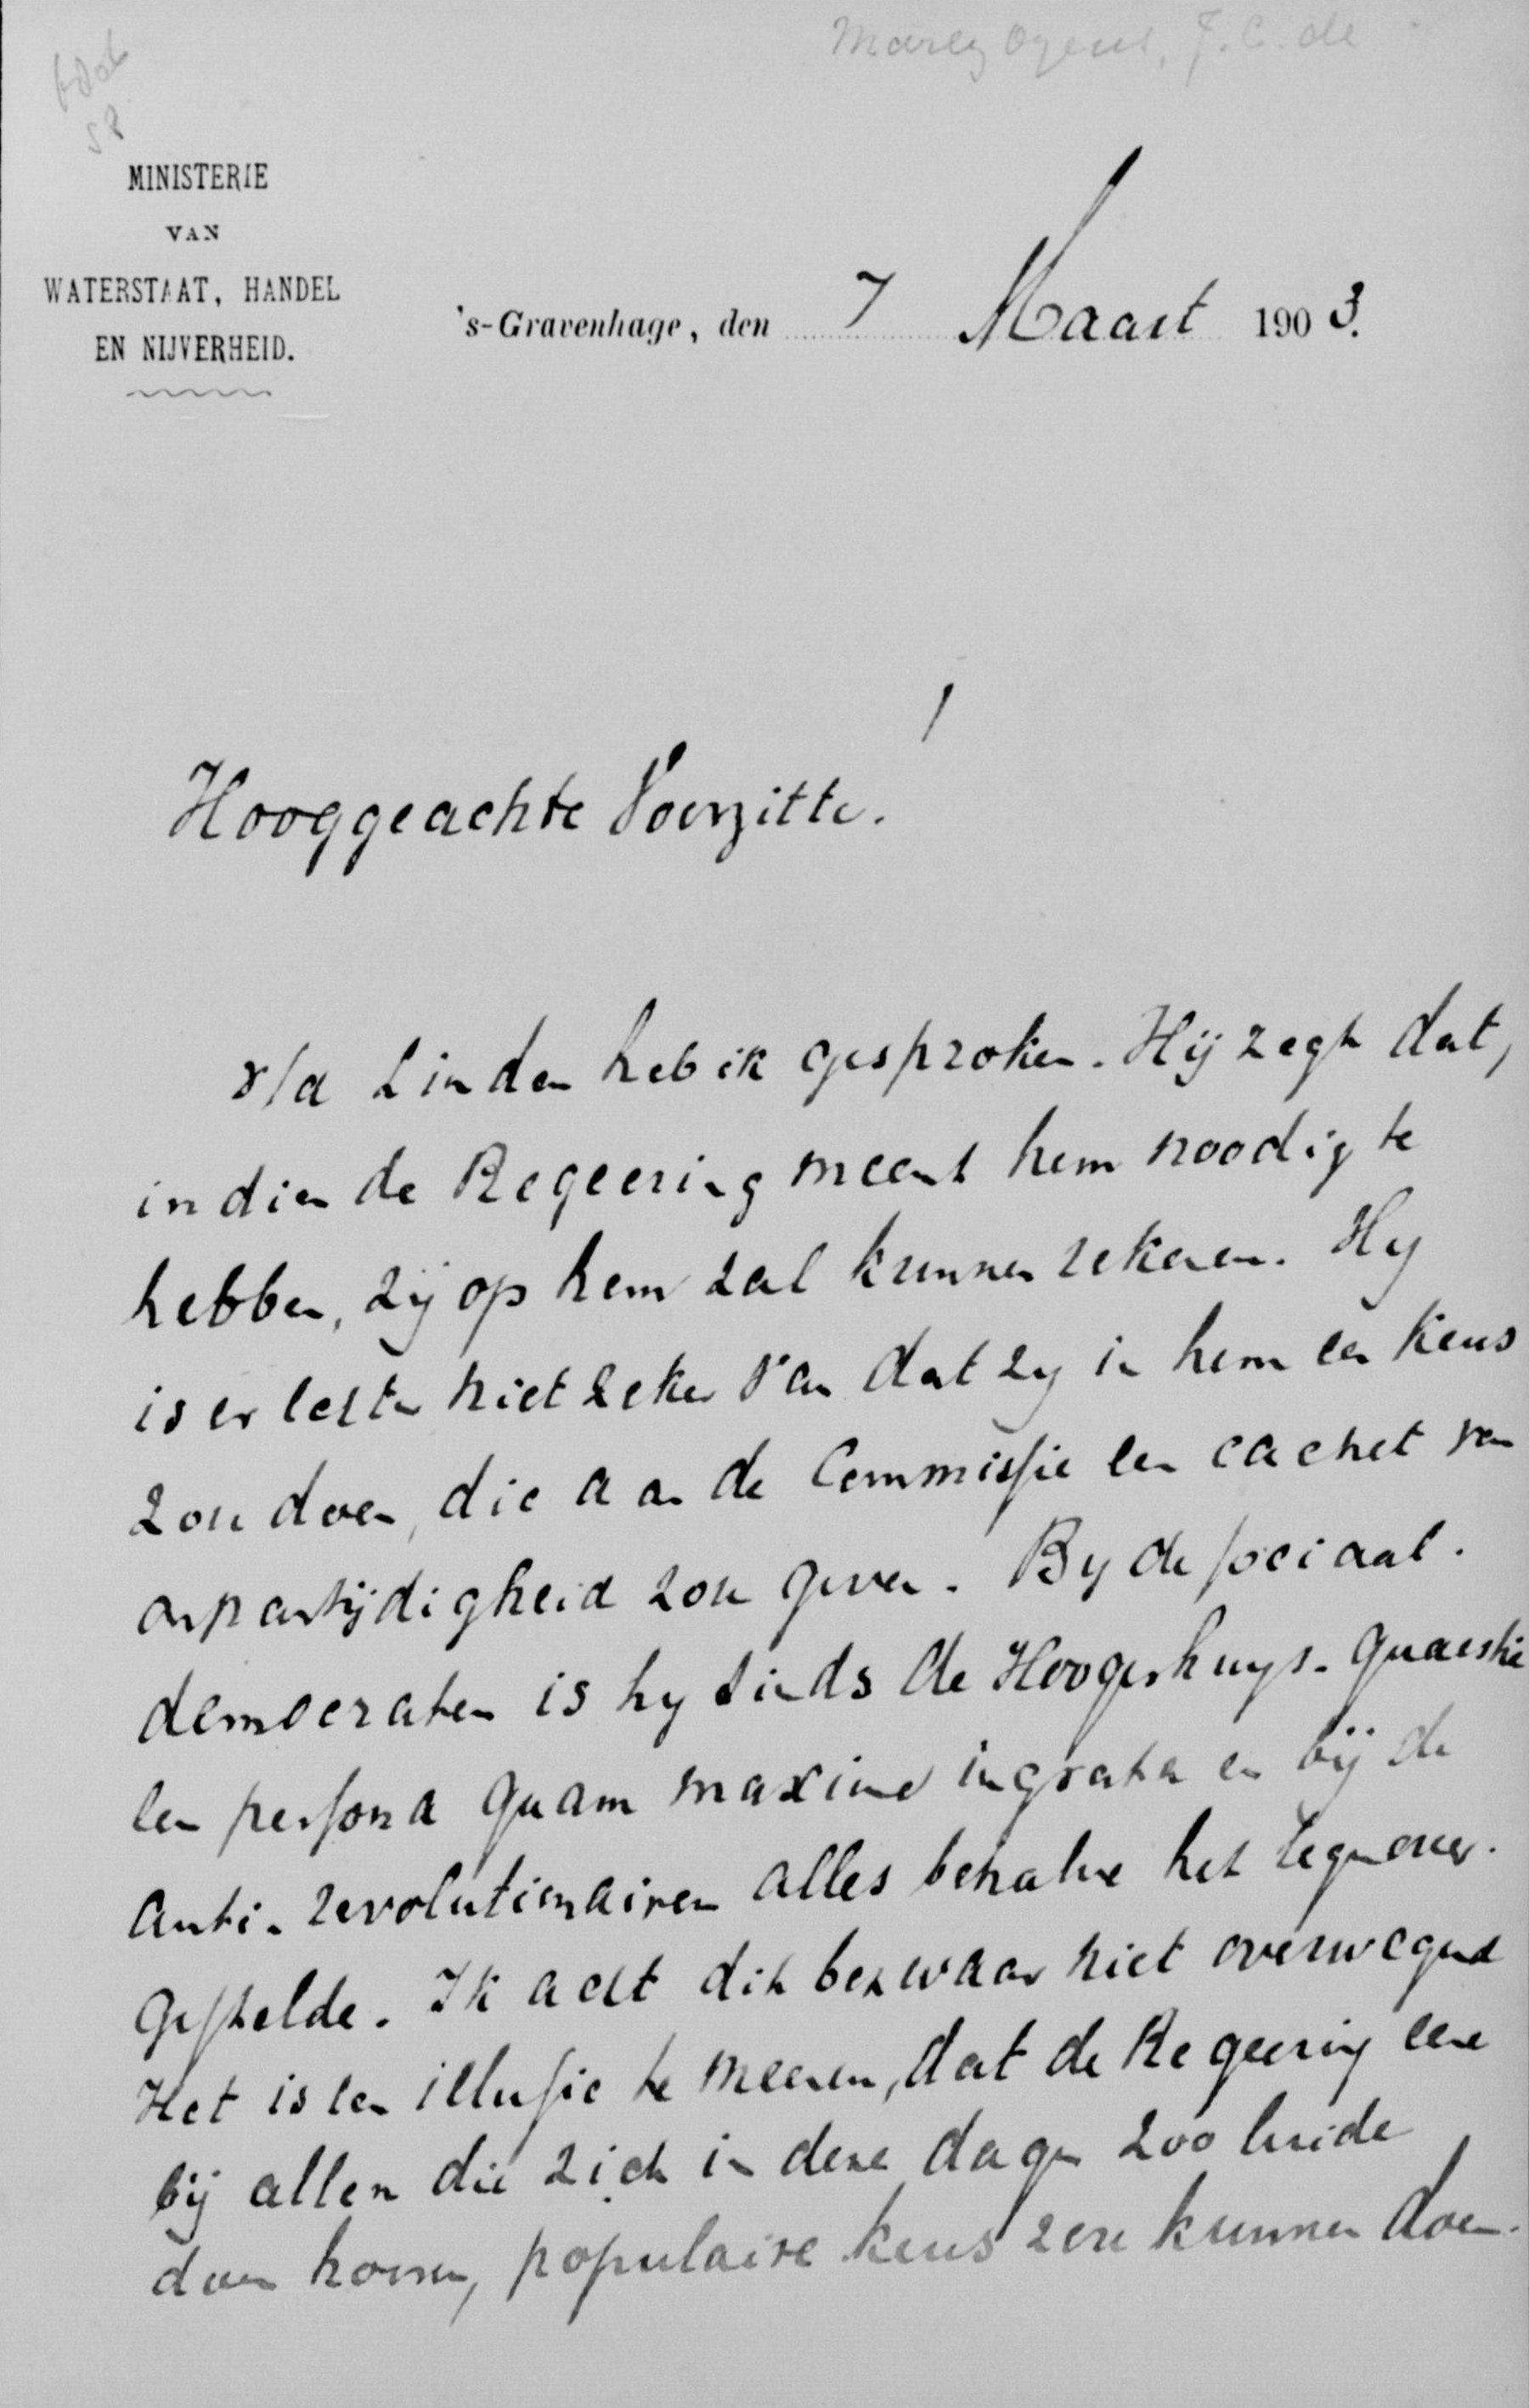 Marez Oyens, J. C. de
MINISTERIE
VAN
WATERSTAAT, HANDEL
EN NIJVERHEID.
's-Gravenhage, den 7 Maart 1903.
Hooggeachte Voorzitter!
v/d Linden heb ik gesproken. Hij zegt dat,
indien de Regeering meent hem noodig te
hebben, zij op hem zal kunnen rekenen. Hy
is er echter niet zeker van dat zy in hem een keus
zou doen, die aan de Commissie een cachet van
onpartijdigheid zou geven. By de sociaal-
democraten is hy sinds de Hoogerhuys-quaestie
een persona quam maxime ingrata en bij de
anti-revolutionairen alles behalve het tegenover-
gestelde. Ik acht dit bezwaar niet overwegend
Het is een illusie te meenen, dat de Regeering eene
bij allen die zich in deze dagen zoo luide
doen hooren, populaire keus zou kunnen doen.